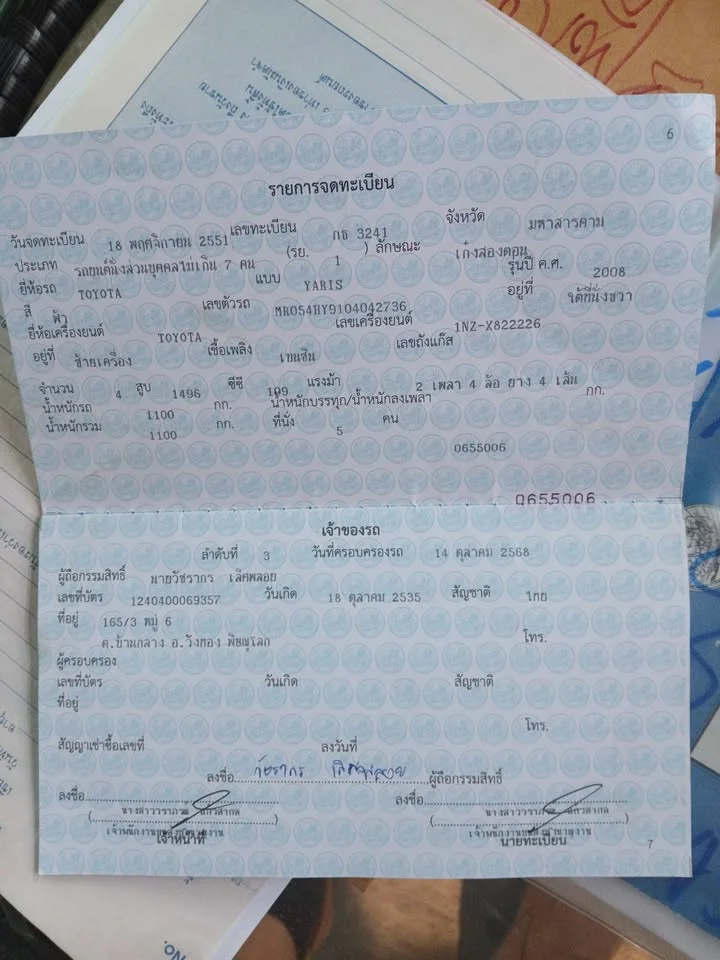 6
รายการจดทะเบียน
วันจดทะเบียน 18 พฤศจิกายน 2551 เลขทะเบียน กธ 3241 จังหวัด มหาสารคาม
ประเภท รถยนต์นั่งส่วนบุคคลไม่เกิน 7 คน (รย. 1 ) ลักษณะ เก๋งสองตอน
ยี่ห้อรถ TOYOTA แบบ YARIS รุ่นปี ค.ศ. 2008
สี ฟ้า เลขตัวรถ MR054HY9104042736 อยู่ที่ ใต้ที่นั่งขวา
ยี่ห้อเครื่องยนต์ TOYOTA เลขเครื่องยนต์ 1NZ-X822226
อยู่ที่ ซ้ายเครื่อง เชื้อเพลิง เบนซิน เลขถังแก๊ส
จำนวน 4 สูบ 1496 ซีซี 109 แรงม้า 2 เพลา 4 ล้อ ยาง 4 เส้น
น้ำหนักรถ 1100 กก. น้ำหนักบรรทุก/น้ำหนักลงเพลา กก.
น้ำหนักรวม 1100 กก. ที่นั่ง 5 คน
0655006
0655006
เจ้าของรถ
ลำดับที่ 3 วันที่ครอบครองรถ 14 ตุลาคม 2568
ผู้ถือกรรมสิทธิ์ นายวัชรากร เลิศพลอย
เลขที่บัตร 1240400069357 วันเกิด 18 ตุลาคม 2535 สัญชาติ ไทย
ที่อยู่ 165/3 หมู่ 6
ต.บ้านกลาง อ.วังทอง พิษณุโลก โทร.
ผู้ครอบครอง
เลขที่บัตร วันเกิด สัญชาติ
ที่อยู่
โทร.
สัญญาเช่าซื้อเลขที่ ลงวันที่
ลงชื่อ วัชรากร เลิศพลอย ผู้ถือกรรมสิทธิ์
ลงชื่อ ลงชื่อ
( นางสาววราภรณ์ ) ( นางสาววราภรณ์ )
เจ้าหน้าที่ นายทะเบียน
7
No.